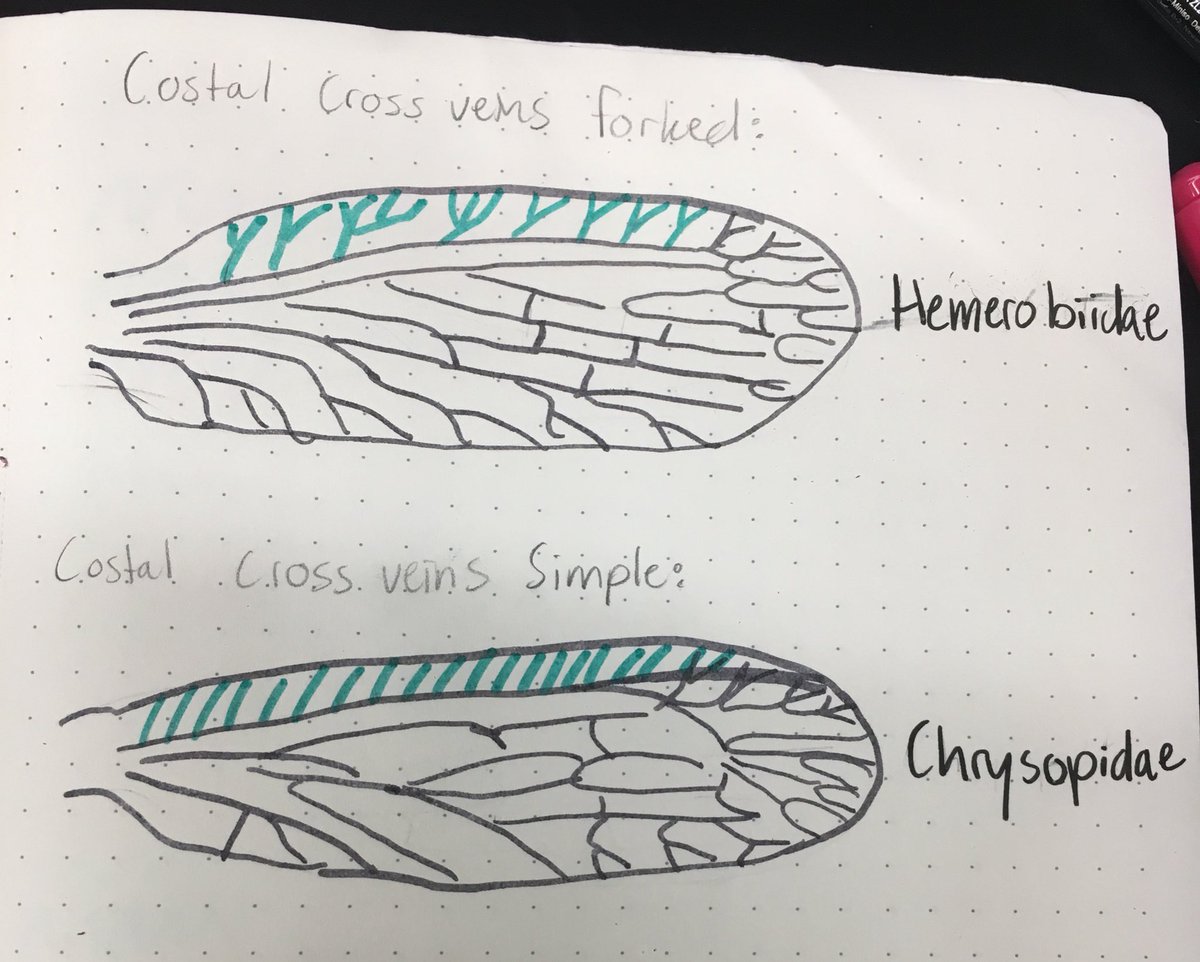 Costal Cross veins forked:
Hemerobiidae
Costal Cross veins Simple:
Chrysopidae